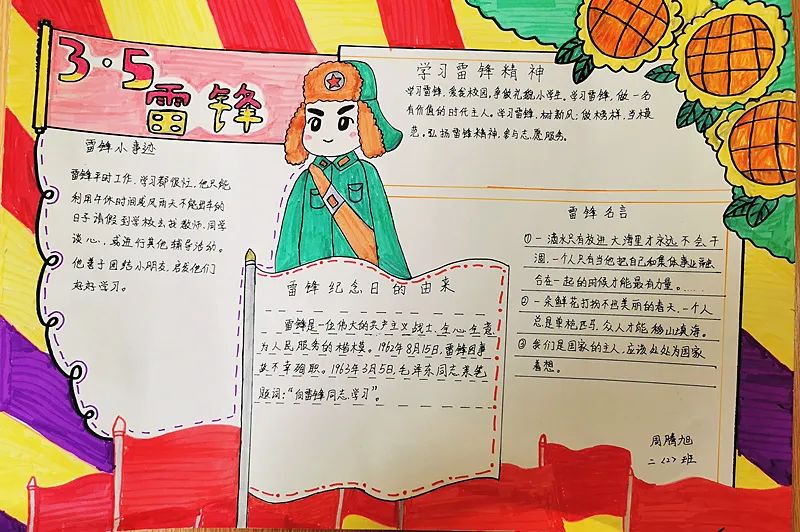 3·5
雷锋
雷锋小事迹
雷锋平时工作、学习都很忙,他只能
利用午休时间或风雨天不能出车的
日子请假到学校去找教师、同学
谈心,或进行其他辅导活动。
他善于团结小朋友,启发他们
好好学习。
学习雷锋精神
学习雷锋,爱我校园,争做礼貌小学生。学习雷锋,做一名
有价值的时代主人。学习雷锋,树新风;做榜样,当模
范。弘扬雷锋精神,参与志愿服务。
雷锋纪念日的由来
雷锋是一位伟大的共产主义战士、全心全意
为人民服务的楷模。1962年8月15日,雷锋因事
故不幸殉职。1963年3月5日,毛泽东同志亲笔
题词:“向雷锋同志学习”。
雷锋名言
①一滴水只有放进大海里才永远不会干
涸,一个人只有当他把自己和集体事业融
合在一起的时候才能最有力量。……
②一朵鲜花打扮不出美丽的春天,一个人
总是单枪匹马,众人才能移山填海。
③我们是国家的主人,应该处处为国家
着想。
周腾旭
二〈2〉班